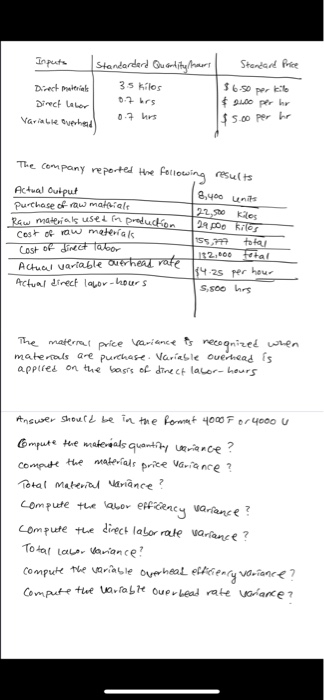 Inputs Standarderd Quantity/hours Standard Price
Direct Materials 3.5 kilos $6.50 per kilo
Direct Labor 0.7 hrs per hr
Variable overhead 0.7 hrs $5.00 per hr
The company reported the following results
Actual Output 8,400 units
Purchase of raw materials 22,500 kilos
Raw materials used in production 29,000 kilos
Cost of raw materials total
Cost of direct labor total
Actual variable overhead rate $4.25 per hour
Actual direct labor-hours 5,500 hrs
The material price variance is recognized when
materials are purchase. Variable overhead is
applied on the basis of direct labor-hours
Answer should be in the format 4000F or 4000 U
Compute the materials quantity variance?
compute the materials price variance?
Total Material Variance?
Compute the labor efficiency variance?
Compute the direct labor rate variance?
Total labor variance?
compute the variable overhead efficiency variance?
Compute the variable overhead rate variance?